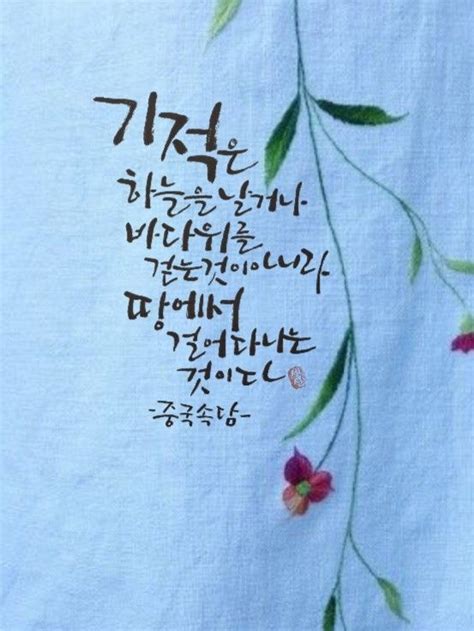 기적은
하늘을 날거나
바다위를
걷는것이아니라
땅에서
걸어다니는
것이다
-중국속담-